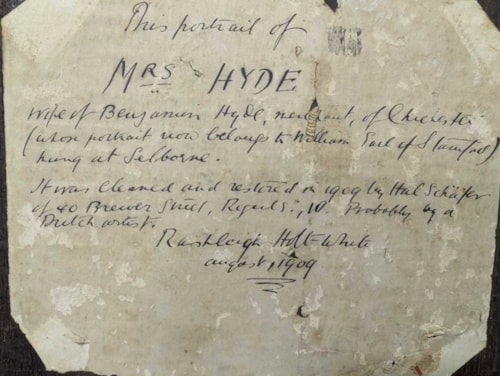 This portrait of
MRS HYDE
wife of Benjamin Hyde, merchant, of Chichester
(whose portrait now belongs to William Earl of Stamford)
hung at Selborne.
It was cleaned and restored in 1909 by Hal Schäfer
of 40 Brewer Street, Regent St., W. Probably by a
Dutch artist.
Rashleigh Holt-White
august, 1909